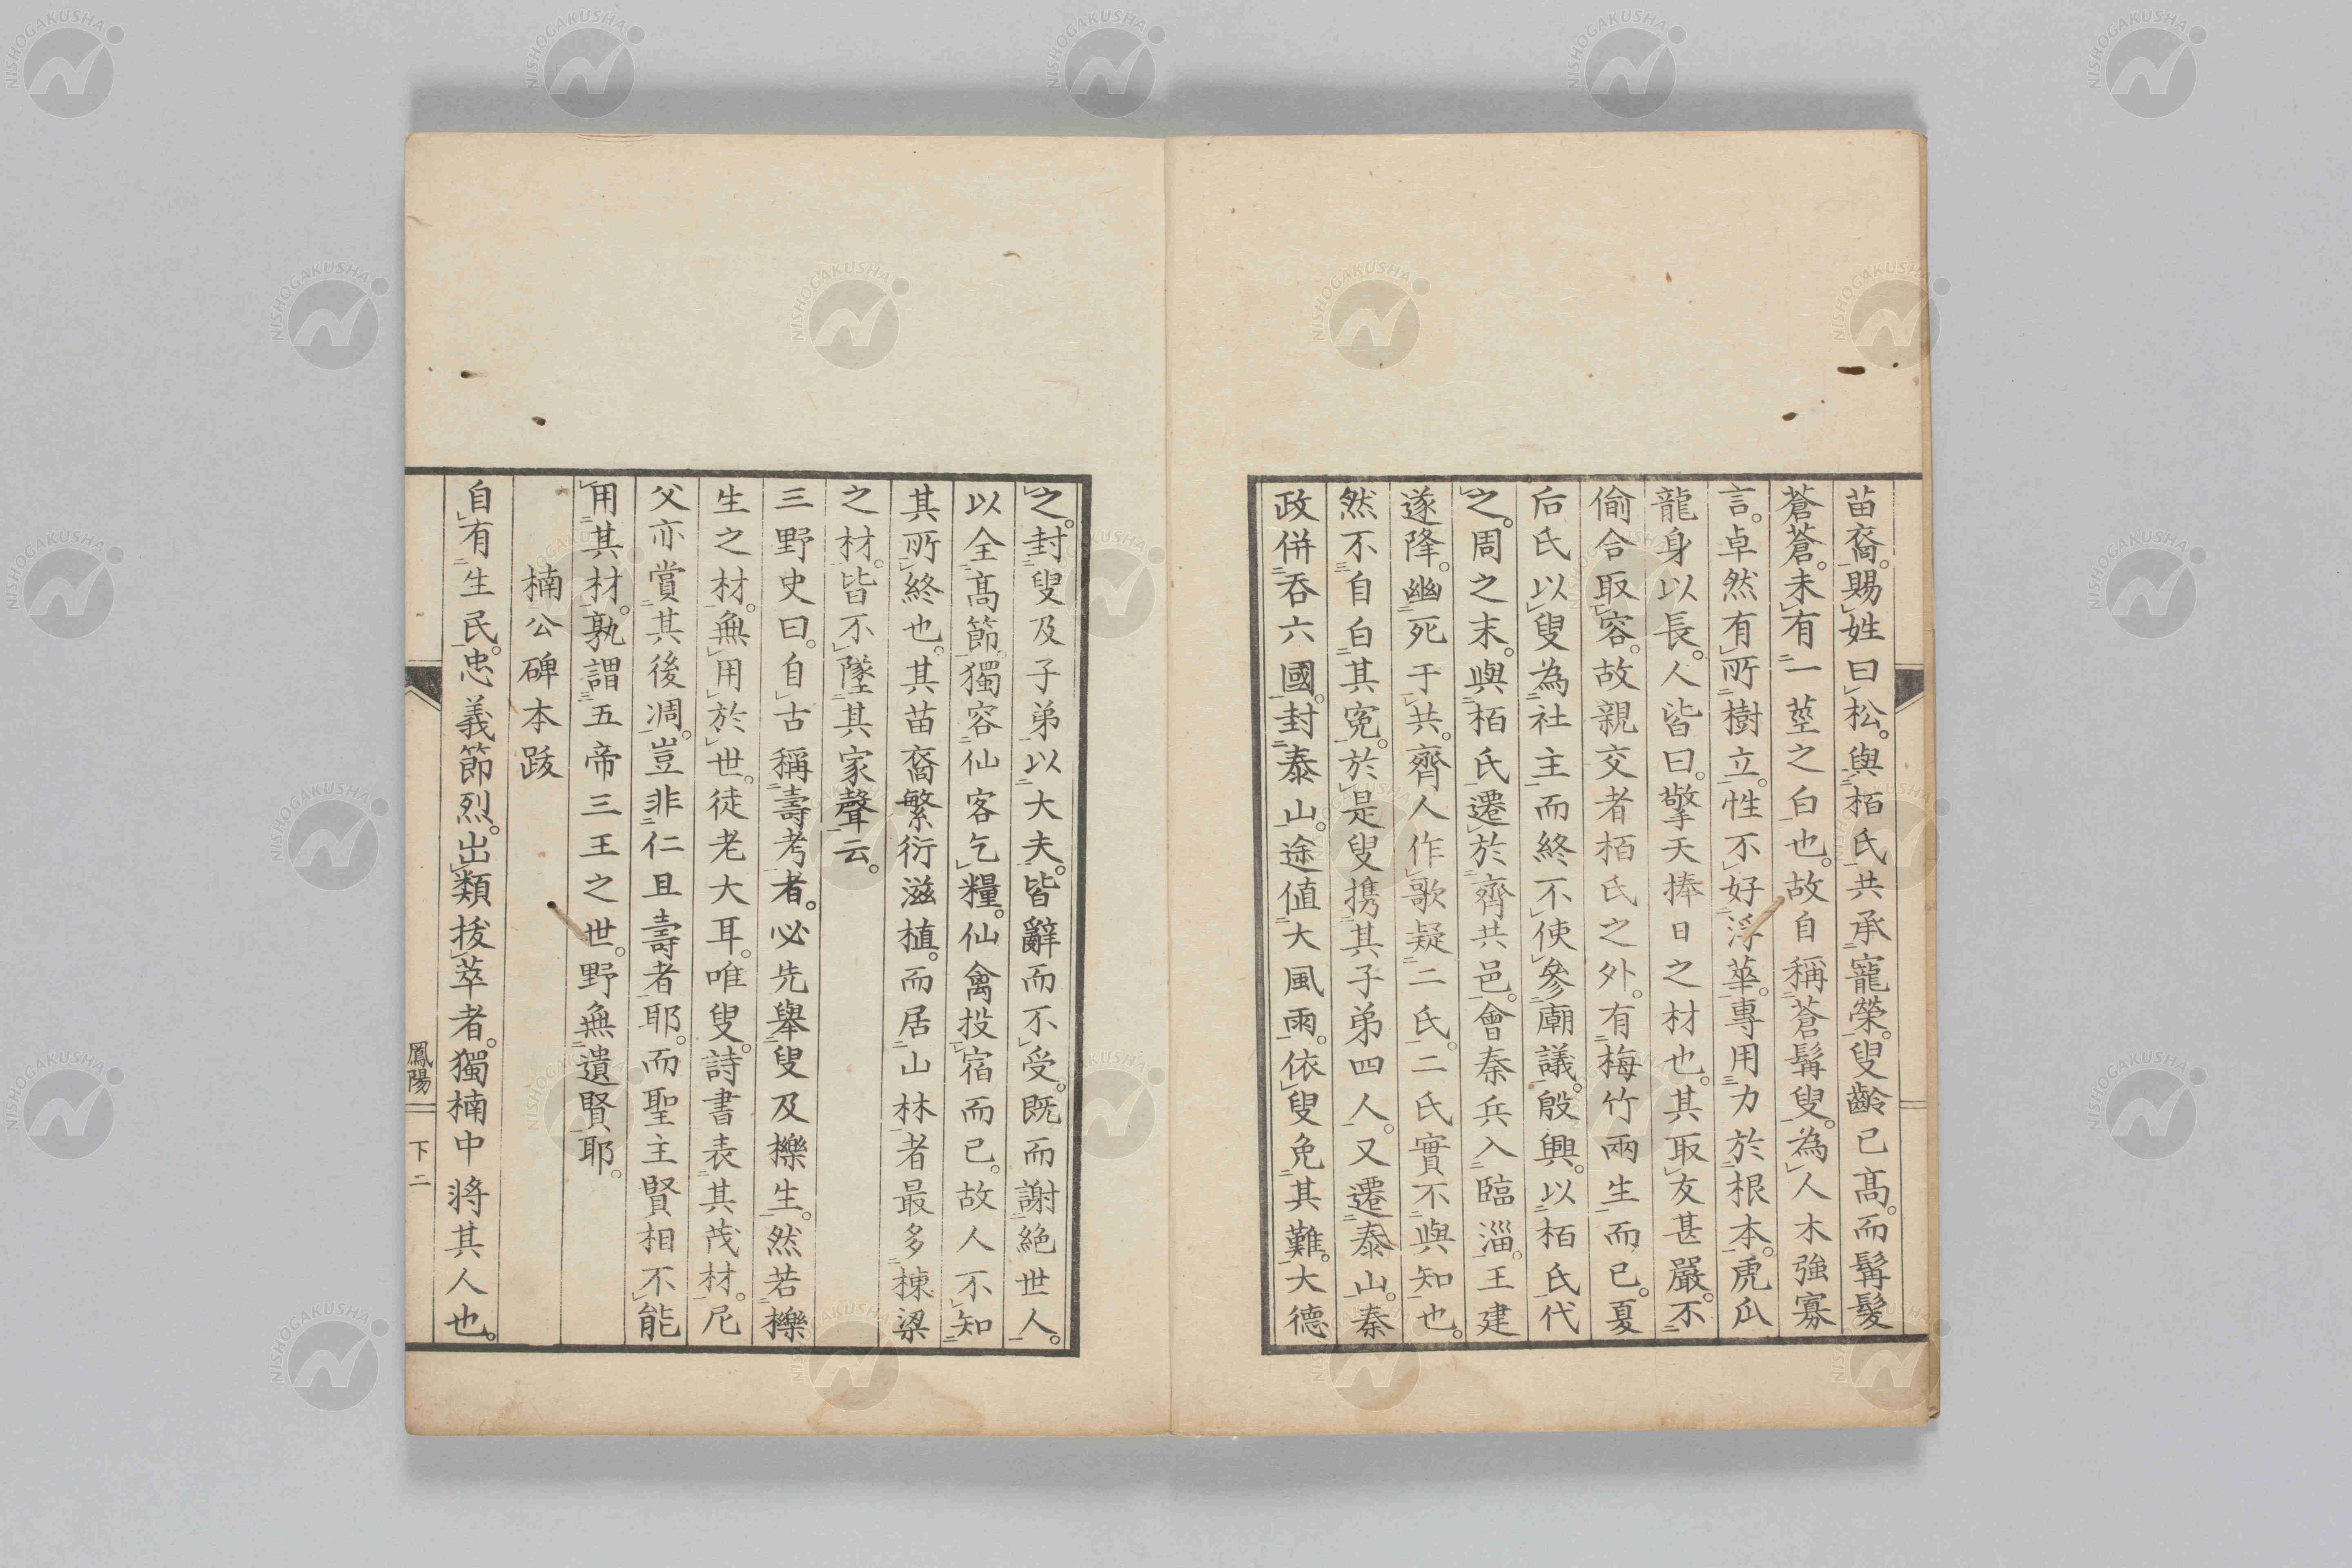 苗裔。賜姓曰松。與栢氏共承寵榮。叟齡已髙。而髯髮
蒼蒼。未有一莖之白也。故自稱蒼髯叟。為人木強寡
言。卓然有所樹立。性不好浮華。專用力於根本。虎瓜
龍身以長。人皆曰。擎天捧日之材也。其取友甚嚴。不
偷合取容。故親交者栢氏之外。有梅竹兩生而已。夏
后氏以叟為社主而終不使參廟議。殷興。以栢氏代
之。周之末。與栢氏遷於齊共邑。會秦兵入臨淄。王建
遂降。幽死于共。齊人作歌疑二氏。二氏實不與知也。
然不自白其寃。於是叟携其子弟四人。又遷泰山。秦
政併吞六國。封泰山。途値大風雨。依叟免其難。大德
之。封叟及子弟以大夫。皆辭而不受。既而謝絕世人。
以全髙節。獨容仙客乞糧。仙禽投宿而已。故人不知
其所終也。其苗裔繁衍滋植。而居山林者最多。棟梁
之材。皆不墜其家聲云。
三野史曰。自古稱壽考者。必先舉叟及櫟生。然若櫟
生之材。無用於世。徒老大耳。唯叟。詩書表其茂材。尼
父亦賞其後凋。豈非仁且壽者耶。而聖主賢相不能
用其材。孰謂五帝三王之世。野無遺賢耶。
楠公碑本跋
自有生民。忠義節烈。出類拔萃者。獨楠中將其人也。
鳳陽 下 二
NISHOGAKUSHA